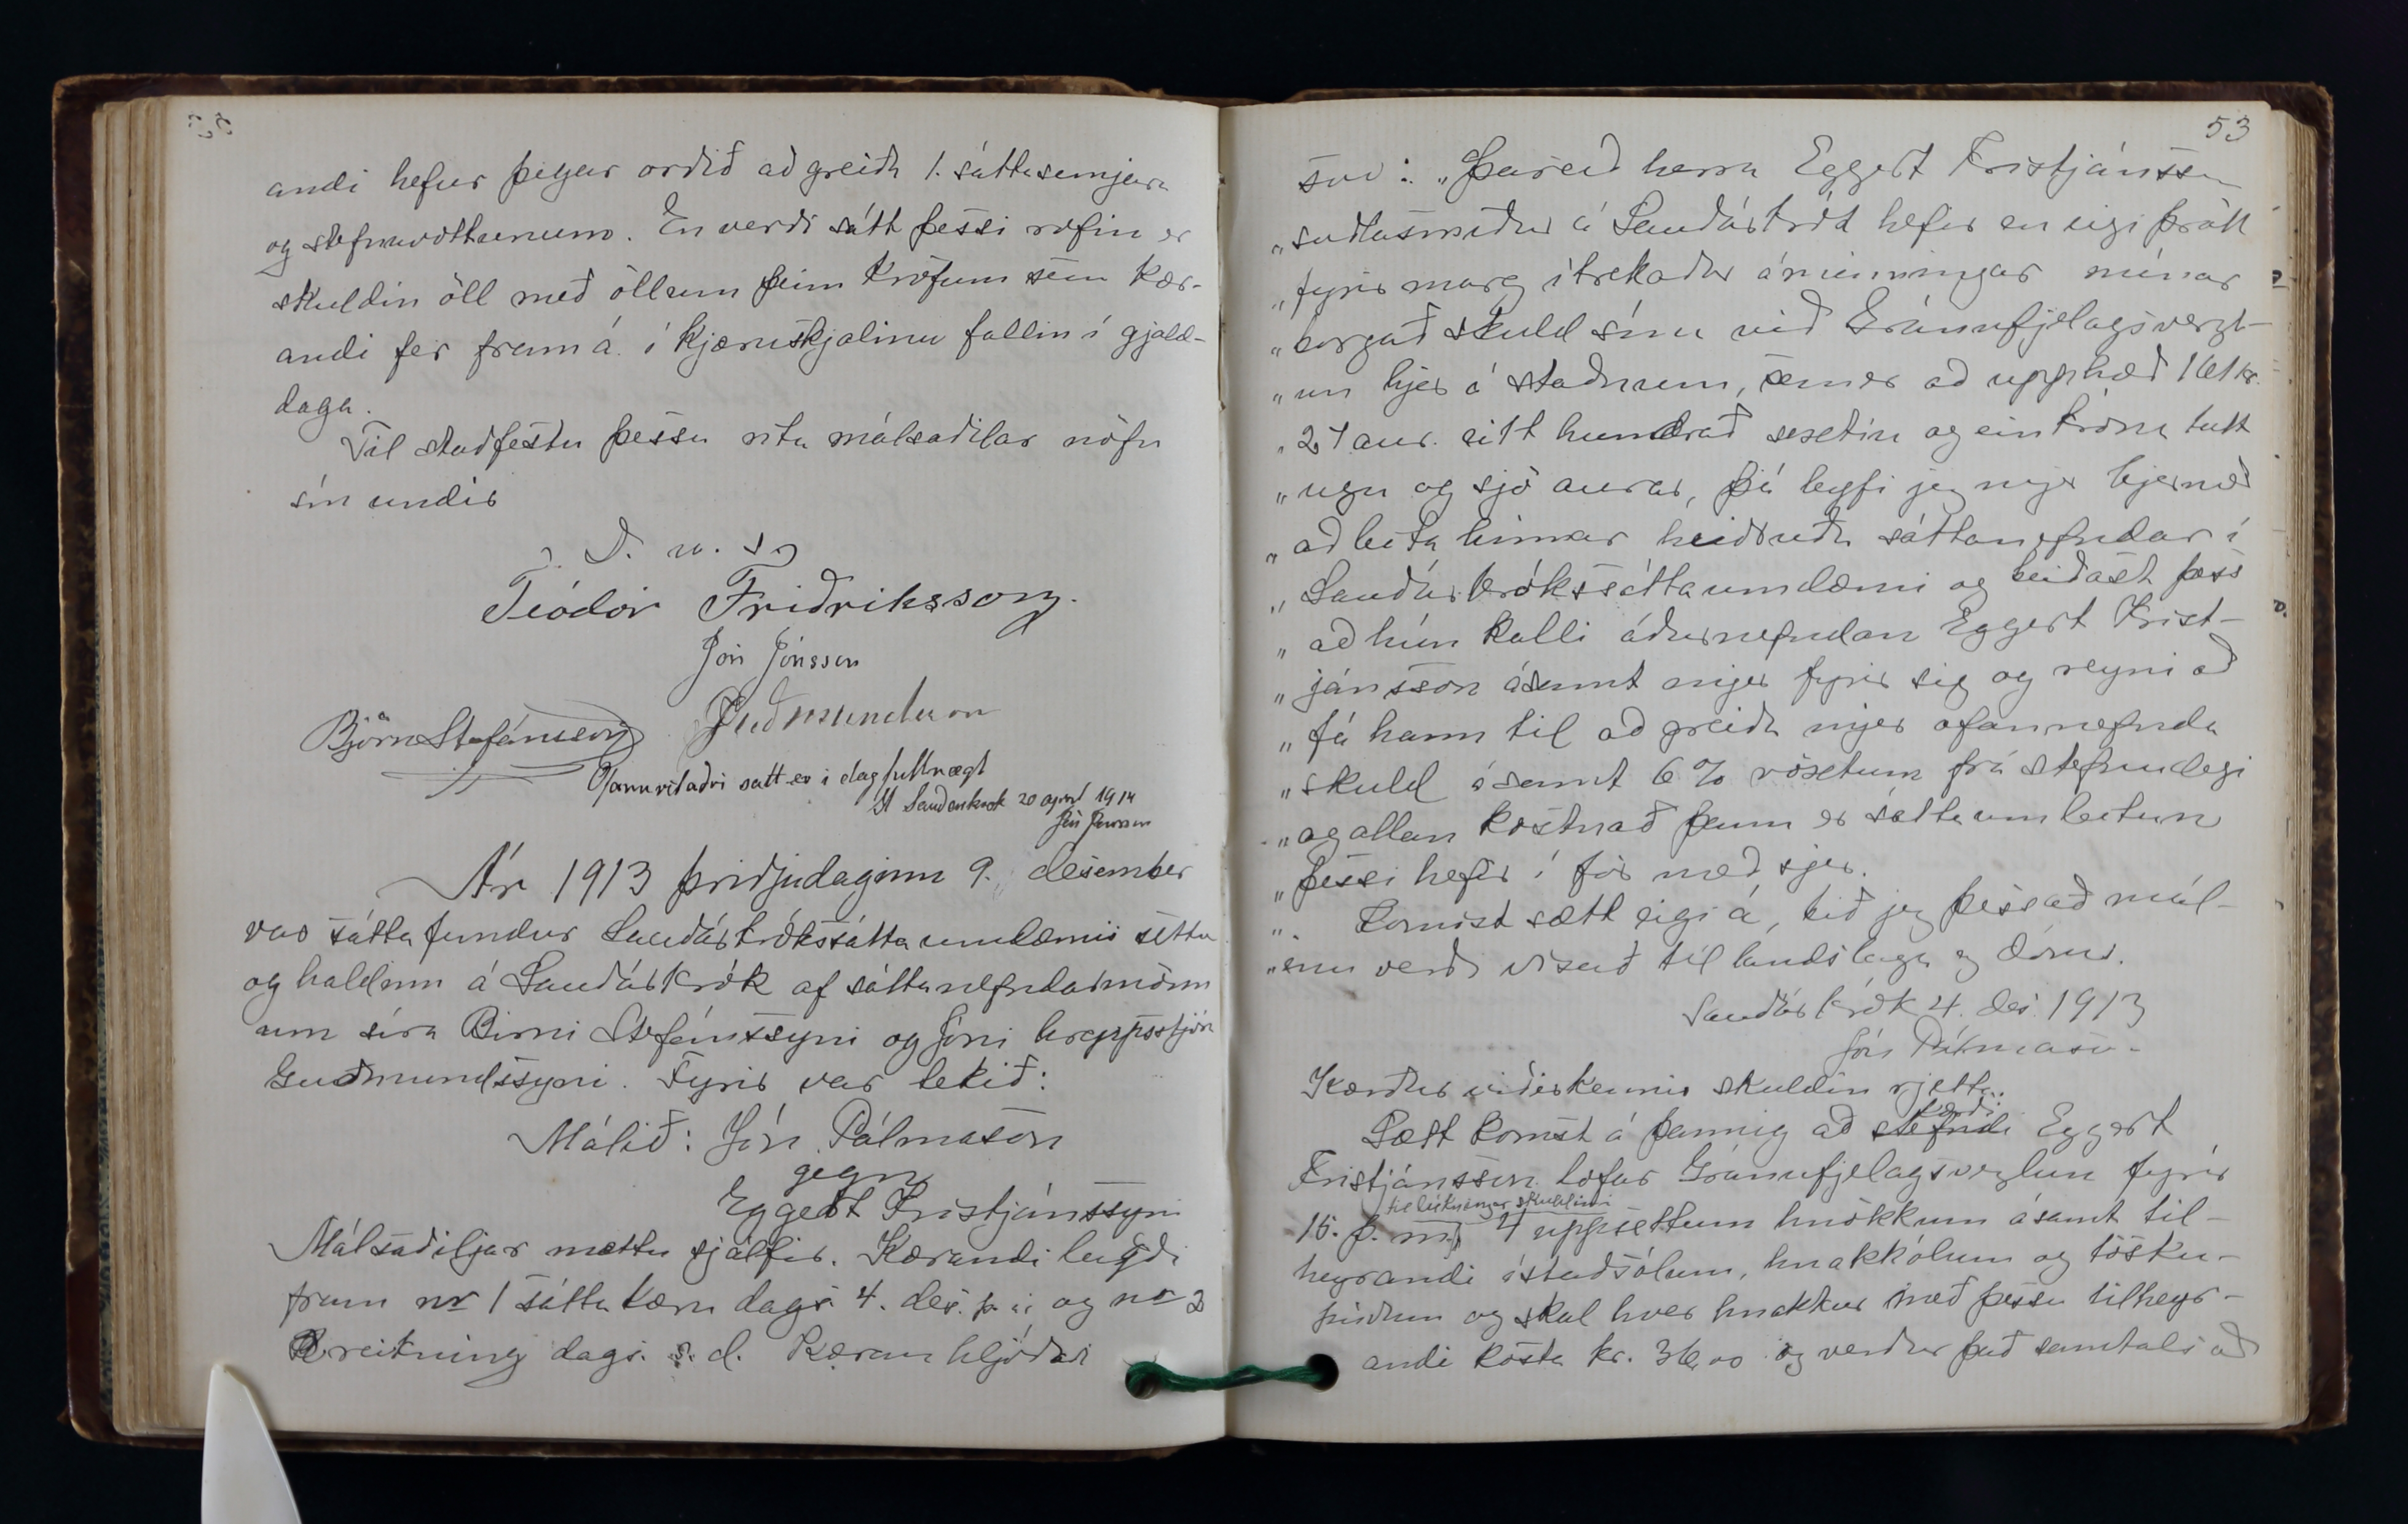 andi hefur þegar orðið að greiða 1. sáttasemjara
og stefnuvottunum. En verði sátt þessi rofin er
skuldin öll með öllum þeim kröfum sem kær-
andi fer fram á í kjæruskjalinu fallin í gjald-
daga.
Til staðfestu þessu rita málsaðilar nöfn
sín undir
D. u. s.
Teódór Friðriksson.
Jón Jónsson
Björn Stefánsson Guðmundsson
Ofanritaðri sátt er í dag fullnægt
St Sauðarkrok 20 april 1914
Jón
Ár 1913 þriðjudaginn 9. desember
var sáttafundur Sauðárkrókssáttaumdæmis settur
og haldinn á Sauðárkrók af sáttanefndarmönn
um síra Birni Stefánssyni og Jóni hreppsstjóra
Guðmundssyni. Fyrir var tekið:
Málið: Jón Pálmason
gegn
Eggert Kristjánssyni
Málsaðiljar mættu sjálfir. Kærandi lagði
fram nr 1 sáttakæru dags. 4. des. þ. á. og nr 2
reikning dags. s. d. Kæran hljóðar
53
svo: „Þareð herra Eggert Kristjánsson
„söðlasmiður á Sauðárkrók hefir en eigi þrátt
„fyrir marg ítrekaðar áminningar mínar
„borgað skuld sína við Gránufjelagsverzl-
„un hjer á staðnum, sem er að upphæð 161 kr.
„27 aur. eitt hundrað sextíu og ein króna tutt
„ugu og sjö aurar, þá leyfi jeg mjer hjermeð
„að leita hinnar heiðruðu sáttanefndar í
„Sauðárkrókssáttaumdæmi og beiðast þess
„að hún kalli áðurnefndan Eggert Krist-
„jánsson ásamt mjer fyrir sig og reyni að
„fá hann til að greiða mjer ofannefnda
„skuld ásamt 6% vöxtum frá stefnudegi
„og allan kostnað þann er sáttaumleitun
„þessi hefir í för með sjer.
„ Komist sætt eigi á, bið jeg þess að mál-
„inu verði vísað til landslaga og dóms.
Sauðárkrók 4. des. 1913
Jón Pálmason.
Kærður viðurkennir skuldina rjetta.
kærði
Sætt komst á þannig að stefndi Eggert
Kristjánsson lofar Gránufjelagsverzlun fyrir
til lúkningar skuldinni
15. þ. m. 4 uppsettum hnökkum ásamt til-
heyrandi ístaðsólum, hnakkólum og tösku-
púðum og skal hver hnakkur með þessu tilheyr-
andi kosta kr. 36,00 og verður það samtals að